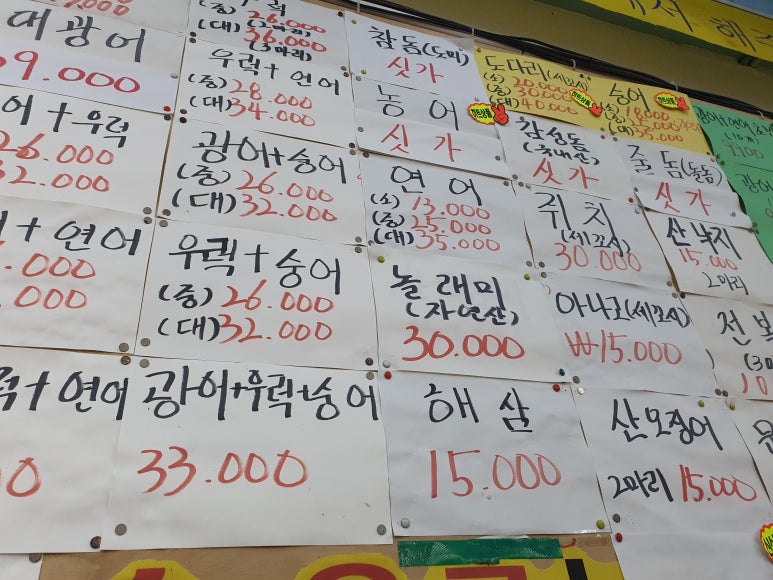 대광어
9.000
어+우럭
26.000
32.000
+연어
.000
.000
+연어
(중) 26.000
(2마리)
(대) 36.000
(3마리)
우럭+연어
(중) 28.000
(대) 34.000
광어+숭어
(중) 26.000
(대) 32.000
우럭+숭어
(중) 26.000
(대) 32.000
광어+우럭+숭어
33.000
참돔(도미)
싯가
농어
싯가
연어
(소) 13.000
(중) 25.000
(대) 35.000
놀래미
(자연산)
30.000
해삼
15.000
도다리(세꼬시)
(소) 20.000
(중) 30.000
(대) 40.000
감성돔
(국내산)
싯가
쥐치
(세꼬시)
30.000
아나고(세꼬시)
₩15.000
산오징어
2마리 15.000
숭어
(소) 18.000
(대) 35.000
줄돔(돌돔)
싯가
산낙지
15.000
2마리
전복
(3마
10
광어+연어
광어